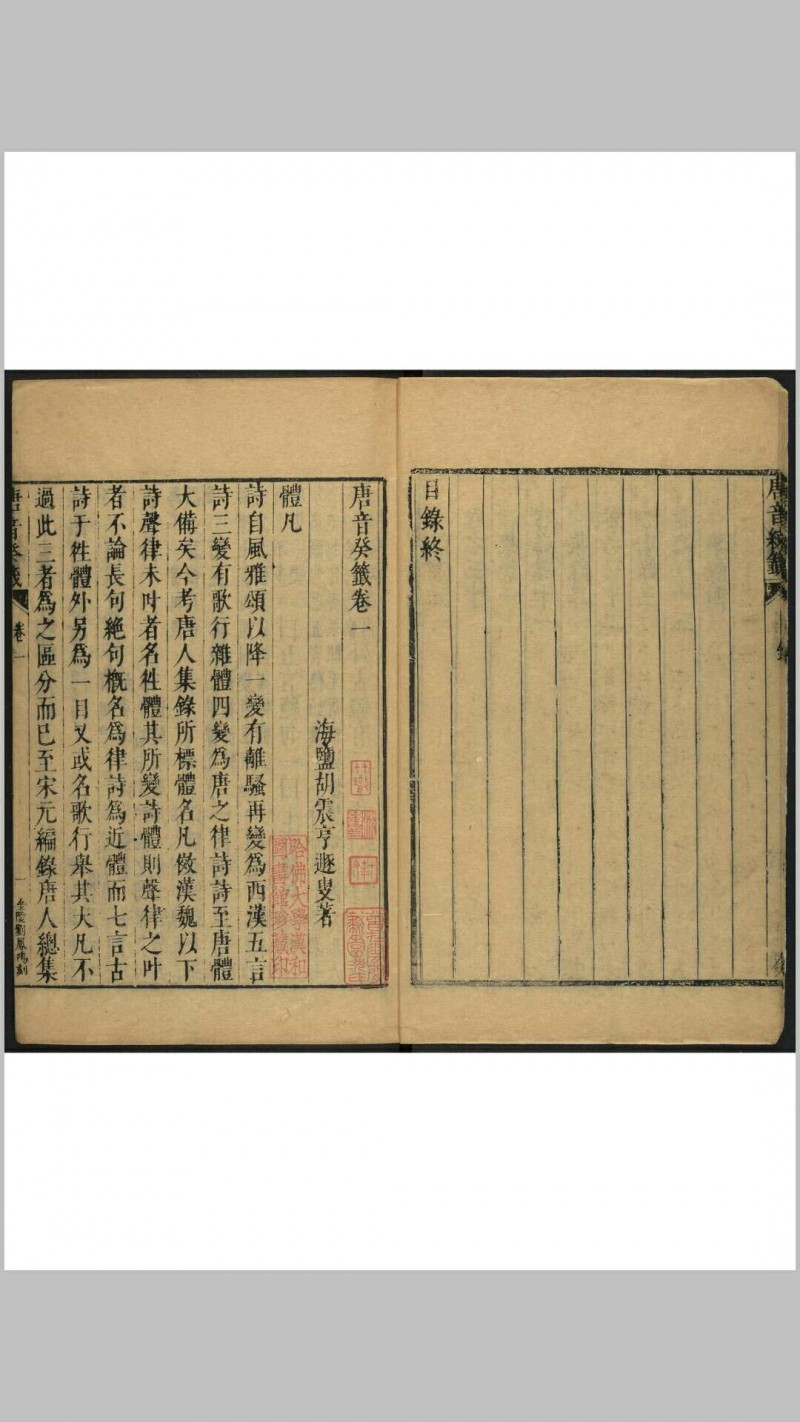 唐音癸籤
目錄終
唐音癸籤卷一
海鹽胡震亨遯叟著
體凡
詩自風雅頌以降一變有離騷再變為西漢五言
詩三變有歌行雜體四變為唐之律詩詩至唐體
大備矣今考唐人集錄所標體名凡倣漢魏以下
詩聲律未叶者名徃體其所變詩體則聲律之叶
者不論長句絕句槪名為律詩為近體而七言古
詩于徃體外另為一目又或名歌行舉其大凡不
過此三者為之區分而已至宋元編錄唐人總集
唐音癸籤
卷一
一
金陵劉鳳鳴刻
哈佛大學漢和
圖書館珍藏印